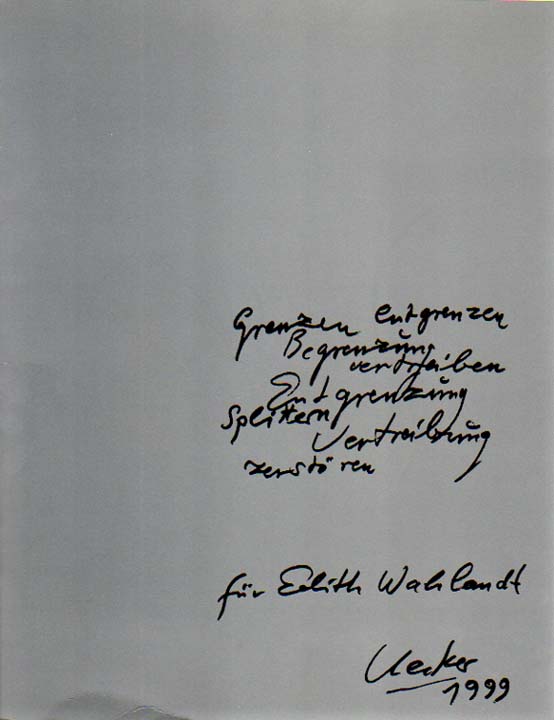 Grenzen entgrenzen
Begrenzung
vertreiben
Entgrenzung
Splittern
Vertreibung
zerstören
für Edith Wahlandt
Uecker
1999